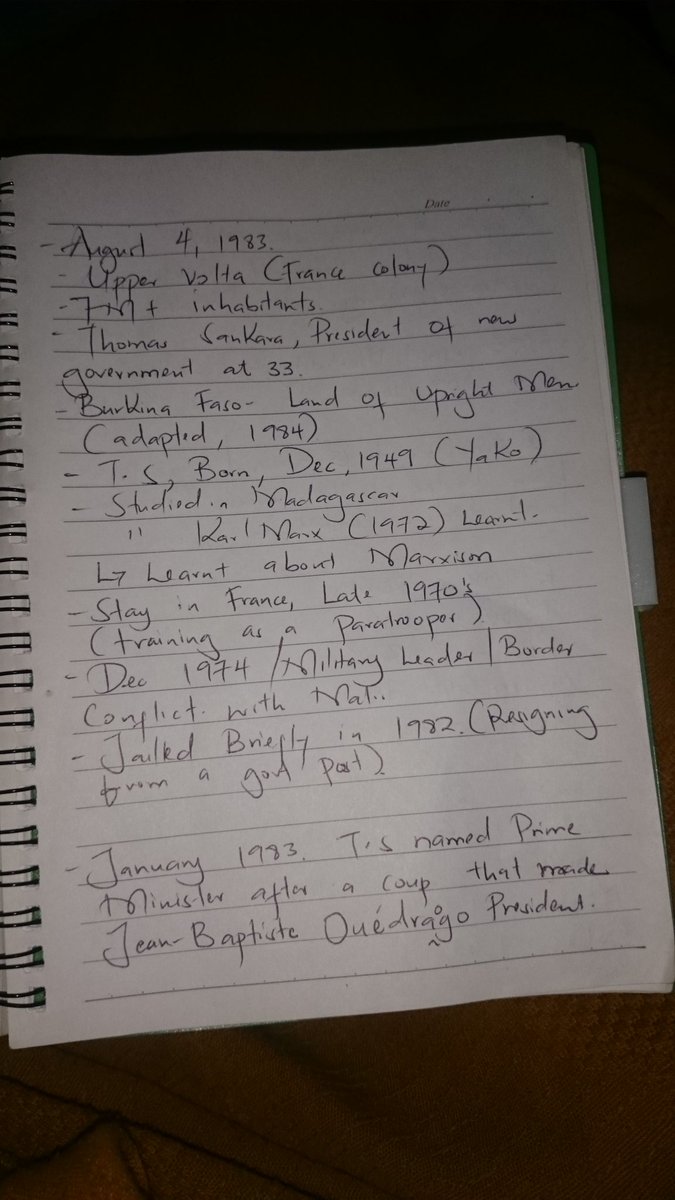 Date
- August 4, 1983.
- Upper Volta (France colony)
- 7M + inhabitants.
- Thomas Sankara, President of new
government at 33.
- Burkina Faso - Land of Upright Men
(adapted, 1984)
- T. S, Born, Dec, 1949 (Yako)
- Studied in Madagascar
" Karl Marx (1972) Learnt.
↳ Learnt about Marxism
- Stay in France, Late 1970's
(training as a Paratrooper)
- Dec 1974 / Military Leader / Border
Conflict with Mali.
- Jailed Briefly in 1982. (Resigning
from a govt Post).
- January 1983. T.S named Prime
Minister after a coup that made
Jean-Baptiste Ouédrãogo President.